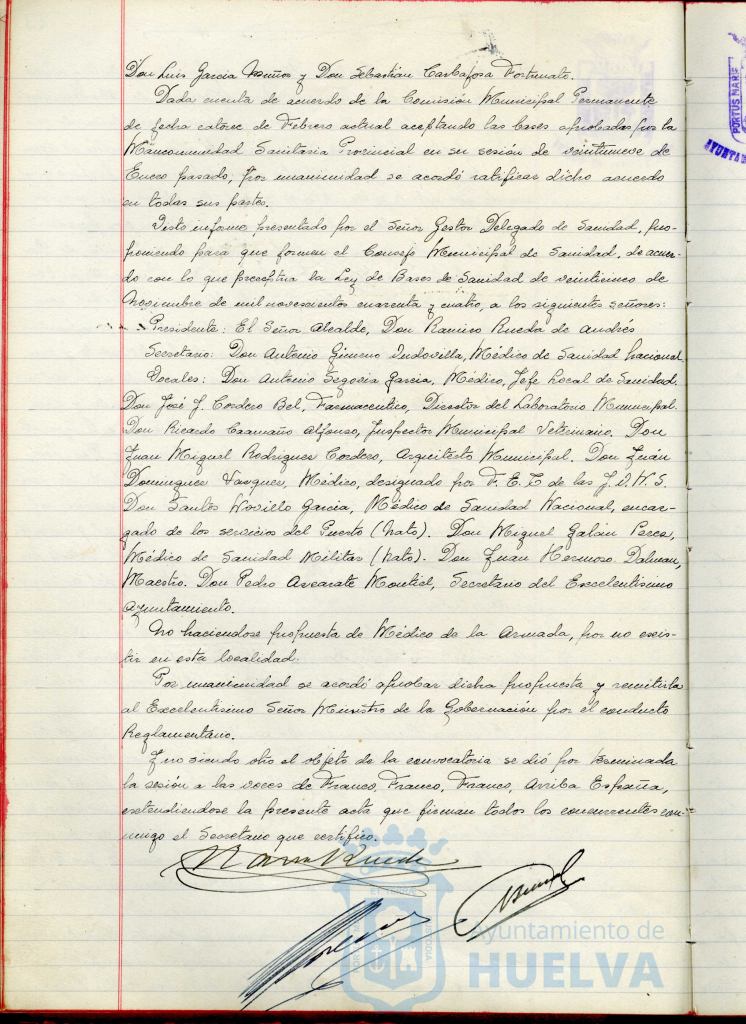 Don Luis Garcia Muñoz y Don Sebastián Carbajosa Fortunato.
Dada cuenta de acuerdo de la Comisión Municipal Permanente
de fecha catorce de Febrero actual aceptando las bases aprobadas por la
Mancomunidad Sanitaria Provincial en su sesión de veintinueve de
Enero pasado, por unanimidad se acordó ratificar dicho acuerdo
en todas sus partes.
Visto informe presentado por el Señor Gestor Delegado de Sanidad, pro-
poniendo para que formen el Consejo Municipal de Sanidad, de acuer-
do con lo que preceptua la Ley de Bases de Sanidad de veinticinco de
Noviembre de mil novecientos cuarenta y cuatro, a los siguientes señores:
Presidente: El Señor Alcalde, Don Ramiro Rueda de Andrés
Secretario: Don Antonio Gimeno Indovilla, Médico de Sanidad Nacional
Vocales: Don Antonio Segovia Garcia, Médico, Jefe Local de Sanidad.
Don José J. Cordero Bel, Farmaceutico, Director del Laboratorio Municipal.
Don Ricardo Caamaño Alfonso, Inspector Municipal Veterinario. Don
Juan Miguel Rodriguez Cordero, Arquitecto Municipal. Don Juan
Dominguez Vazquez, Médico, designado por F.E.T. de las J.O.N.S.
Don Santos Novillo Garcia, Médico de Sanidad Nacional, encar-
gado de los servicios del Puerto (Nato). Don Miguel Galán Perea,
Médico de Sanidad Militar (Nato). Don Juan Hermoso Dalmau,
Maestro. Don Pedro Azcarate Montiel, Secretario del Excelentisimo
Ayuntamiento.
No haciendose propuesta de Médico de la Armada, por no exis-
tir en esta localidad.
Por unanimidad se acordó aprobar dicha propuesta y remitirla
al Excelentisimo Señor Ministro de la Gobernación por el conducto
Reglamentario.
Y no siendo otro el objeto de la convocatoria se dió por terminada
la sesión a las voces de Franco, Franco, Franco, Arriba España,
extendiendose la presente acta que firman todos los concurrentes con-
migo el Secretario que certifico.
Ramiro Rueda
Ayuntamiento de
HUELVA
PORTUS MARIS